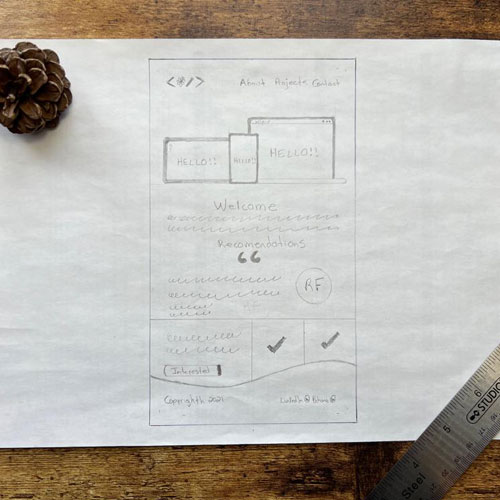 <*/>
About Projects Contact
HELLO!! HELLO!! HELLO!!
Welcome
Recomendations
“
RF
RF
Interested
Copyright 2021
4 5 6
STUDIO
Steel